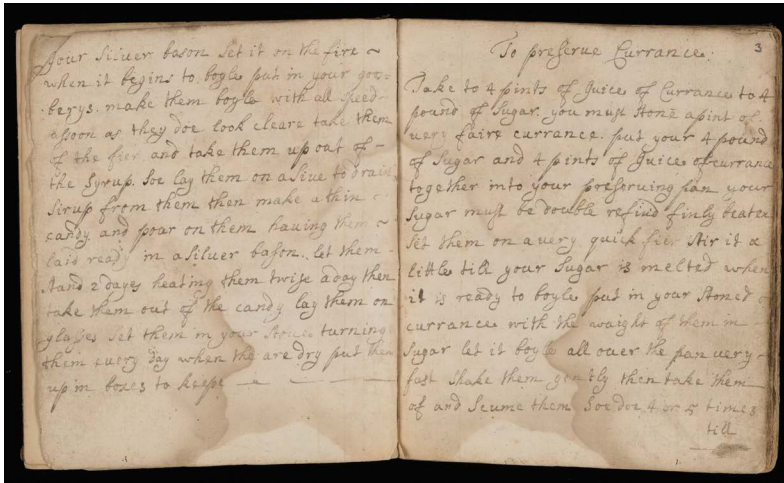 your siluer bason set it on the fire ~
when it begins to boyle put in your goo=
berys. make them boyle with all speed -
assoon as they doe look cleare take them
of the fier and take them up out of -
the Syrup. Soe lay them on a Siue to drain
Sirup from them then make a thin -
candy. and poar on them having them ~
laid ready in a Siluer bason. let them -
stand 2 dayes heating them twise a day then
take them out of the candy lay them on
glasses set them in your Stoue turning
them euery day when the are dry put them
up in boxes to keepe
3
To preserve Currance.
Take to 4 pints of Juice of Currance to 4
pound of Sugar. you must Stone a pint of
uery faire currance. put your 4 pound
of Sugar and 4 pints of Juice of currance
together into your preserving pan your
Sugar must be double refind finly beaten
set them on a uery quick fier Stir it a
little till your Sugar is melted when
it is ready to boyle put in your Stoned
currance with the waight of them in -
Sugar let it boyle all over the pan uery -
fast Shake them gently then take them
of and Scume them Soe doe 4 or 5 times
till